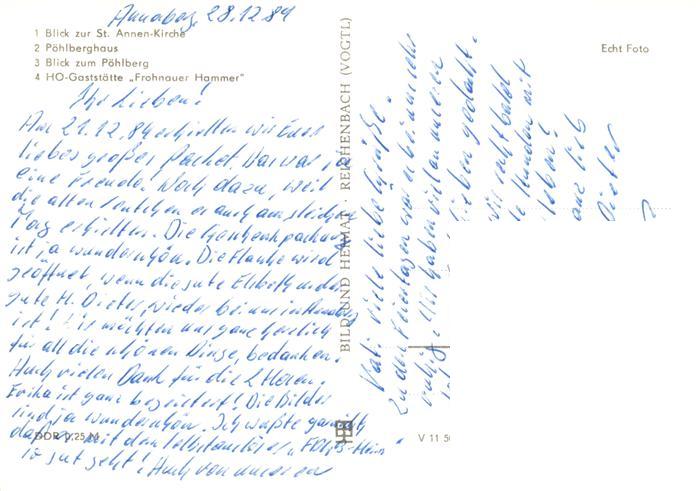 Annaberg, 28.12.84
1 Blick zur St. Annen-Kirche
2 Pöhlberghaus
3 Blick zum Pöhlberg
4 HO-Gaststätte „Frohnauer Hammer"
Echt Foto
Ihr Lieben!
Am 21.12.84 erhielten wir Euer
liebes großes Packet. Das war
eine Freude. Noch dazu, weil
die alten er auch am gleichen
Tag erhielten. Die Geschenkpackung
ist ja wunderschön. Die Flasche wird
geöffnet, wenn die gute Elisabeth u. der
gute H. Dieter, wieder bei uns in Annaberg
ist! Wir möchten uns ganz herzlich
für all die schönen Dinge, bedanken.
Auch vielen Dank für die 2
Erika ist ganz begeistert! Die Bilder
sind ja wunderschön. Ich wußte gar nicht
daß es mit dem Selbstauslöser
so gut geht! Auch von unserer
Kati viele liebe Grüße.
Zu den Feiertagen war er bei uns sehr
ruhig. Wir haben viel an unseren
lieben gedacht.
wir recht bald
Stunden mit
leben!
ganz lieb
Dieter
BILD UND HEIMAT · REICHENBACH (VOGTL)
DDR 0,25 M
V 11 50